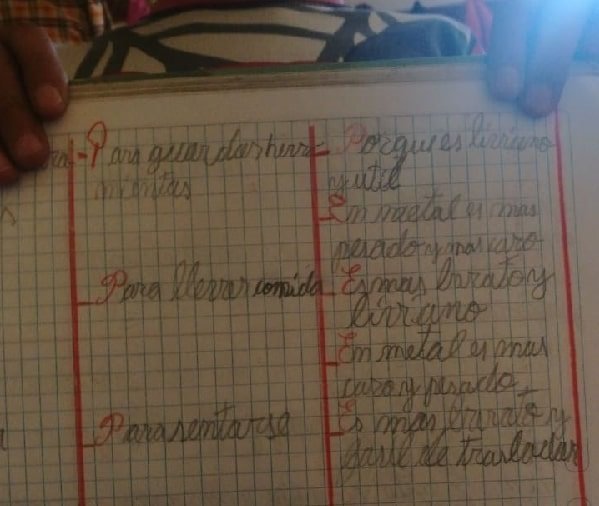 ra
- Para guardar herra
mientas
Para llevar comida
Para sentarse
- Porque es liviano
y util
En metal es mas
pesado y mas caro
Es mas barato y
liviano
En metal es mas
caro y pesado
Es mas barato y
facil de trasladar